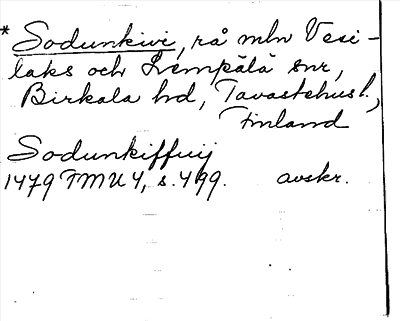 * Sodunkivi, rå mln Vesi-
laks och Lempälä snr,
Birkala hd, Tavastehus l.,
Finland
Sodunkiffwij
1479 FMU 4, s. 499. avskr.